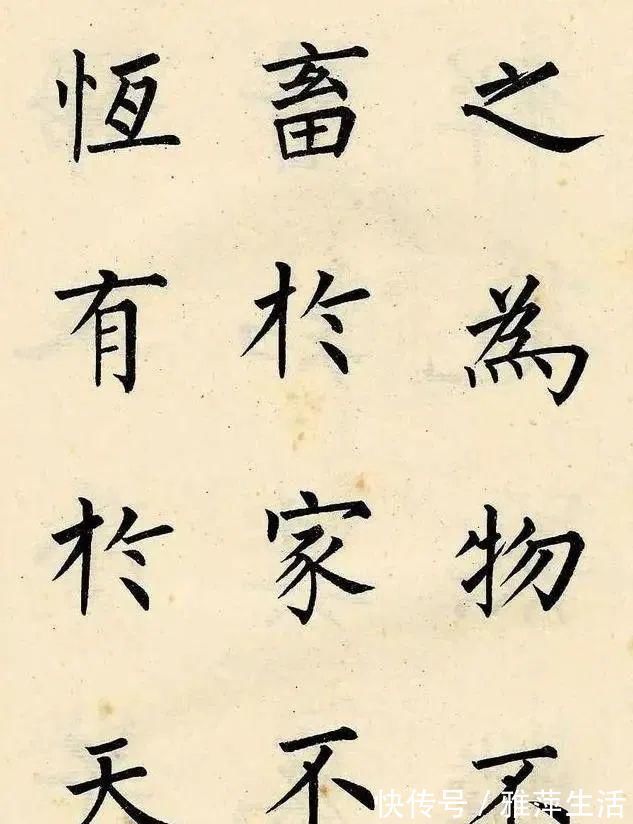 之為物不
畜於家不
恆有於天
快传号/雅萍生活